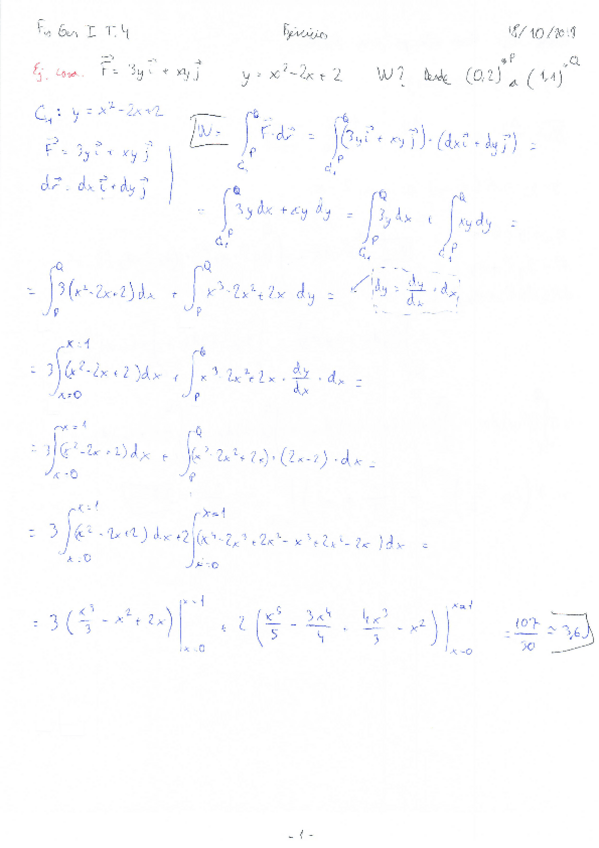 Fis Gen I T.4 Ejercicios 18/10/2018
Ej. casa. F⃗ = 3y i⃗ + xy j⃗ y = x² - 2x + 2 W? Desde (0,2)•P a (1,1)•Q
C₁: y = x² - 2x + 2
F⃗ = 3y i⃗ + xy j⃗
dr⃗ = dx i⃗ + dy j⃗
W = ∫_{C₁ P}^{Q} F⃗·dr⃗ = ∫_{C₁ P}^{Q} (3y i⃗ + xy j⃗)·(dx i⃗ + dy j⃗) =
= ∫_{C₁ P}^{Q} 3y dx + xy dy = ∫_{C₁ P}^{Q} 3y dx + ∫_{C₁ P}^{Q} xy dy =
= ∫_P^Q 3(x² - 2x + 2) dx + ∫_P^Q x³ - 2x² + 2x dy = ↙ dy = dy/dx · dx
= 3∫_{x=0}^{x=1} (x² - 2x + 2) dx + ∫_P^Q x³ - 2x² + 2x · dy/dx · dx =
= 3∫_{x=0}^{x=1} (x² - 2x + 2) dx + ∫_P^Q (x³ - 2x² + 2x)·(2x - 2)·dx =
= 3∫_{x=0}^{x=1} (x² - 2x + 2) dx + 2∫_{x=0}^{x=1} (x⁴ - 2x³ + 2x² - x³ + 2x² - 2x) dx =
= 3(x³/3 - x² + 2x)|_{x=0}^{x=1} + 2(x⁵/5 - 3x⁴/4 + 4x³/3 - x²)|_{x=0}^{x=1} = 107/30 ≈ 3,6 J
- 1 -